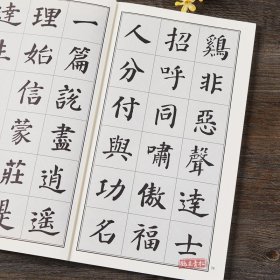 鷄非惡聲達士
招呼同嘯傲福
人分付與功名
一篇說盡逍遥
理始信蒙莊
達